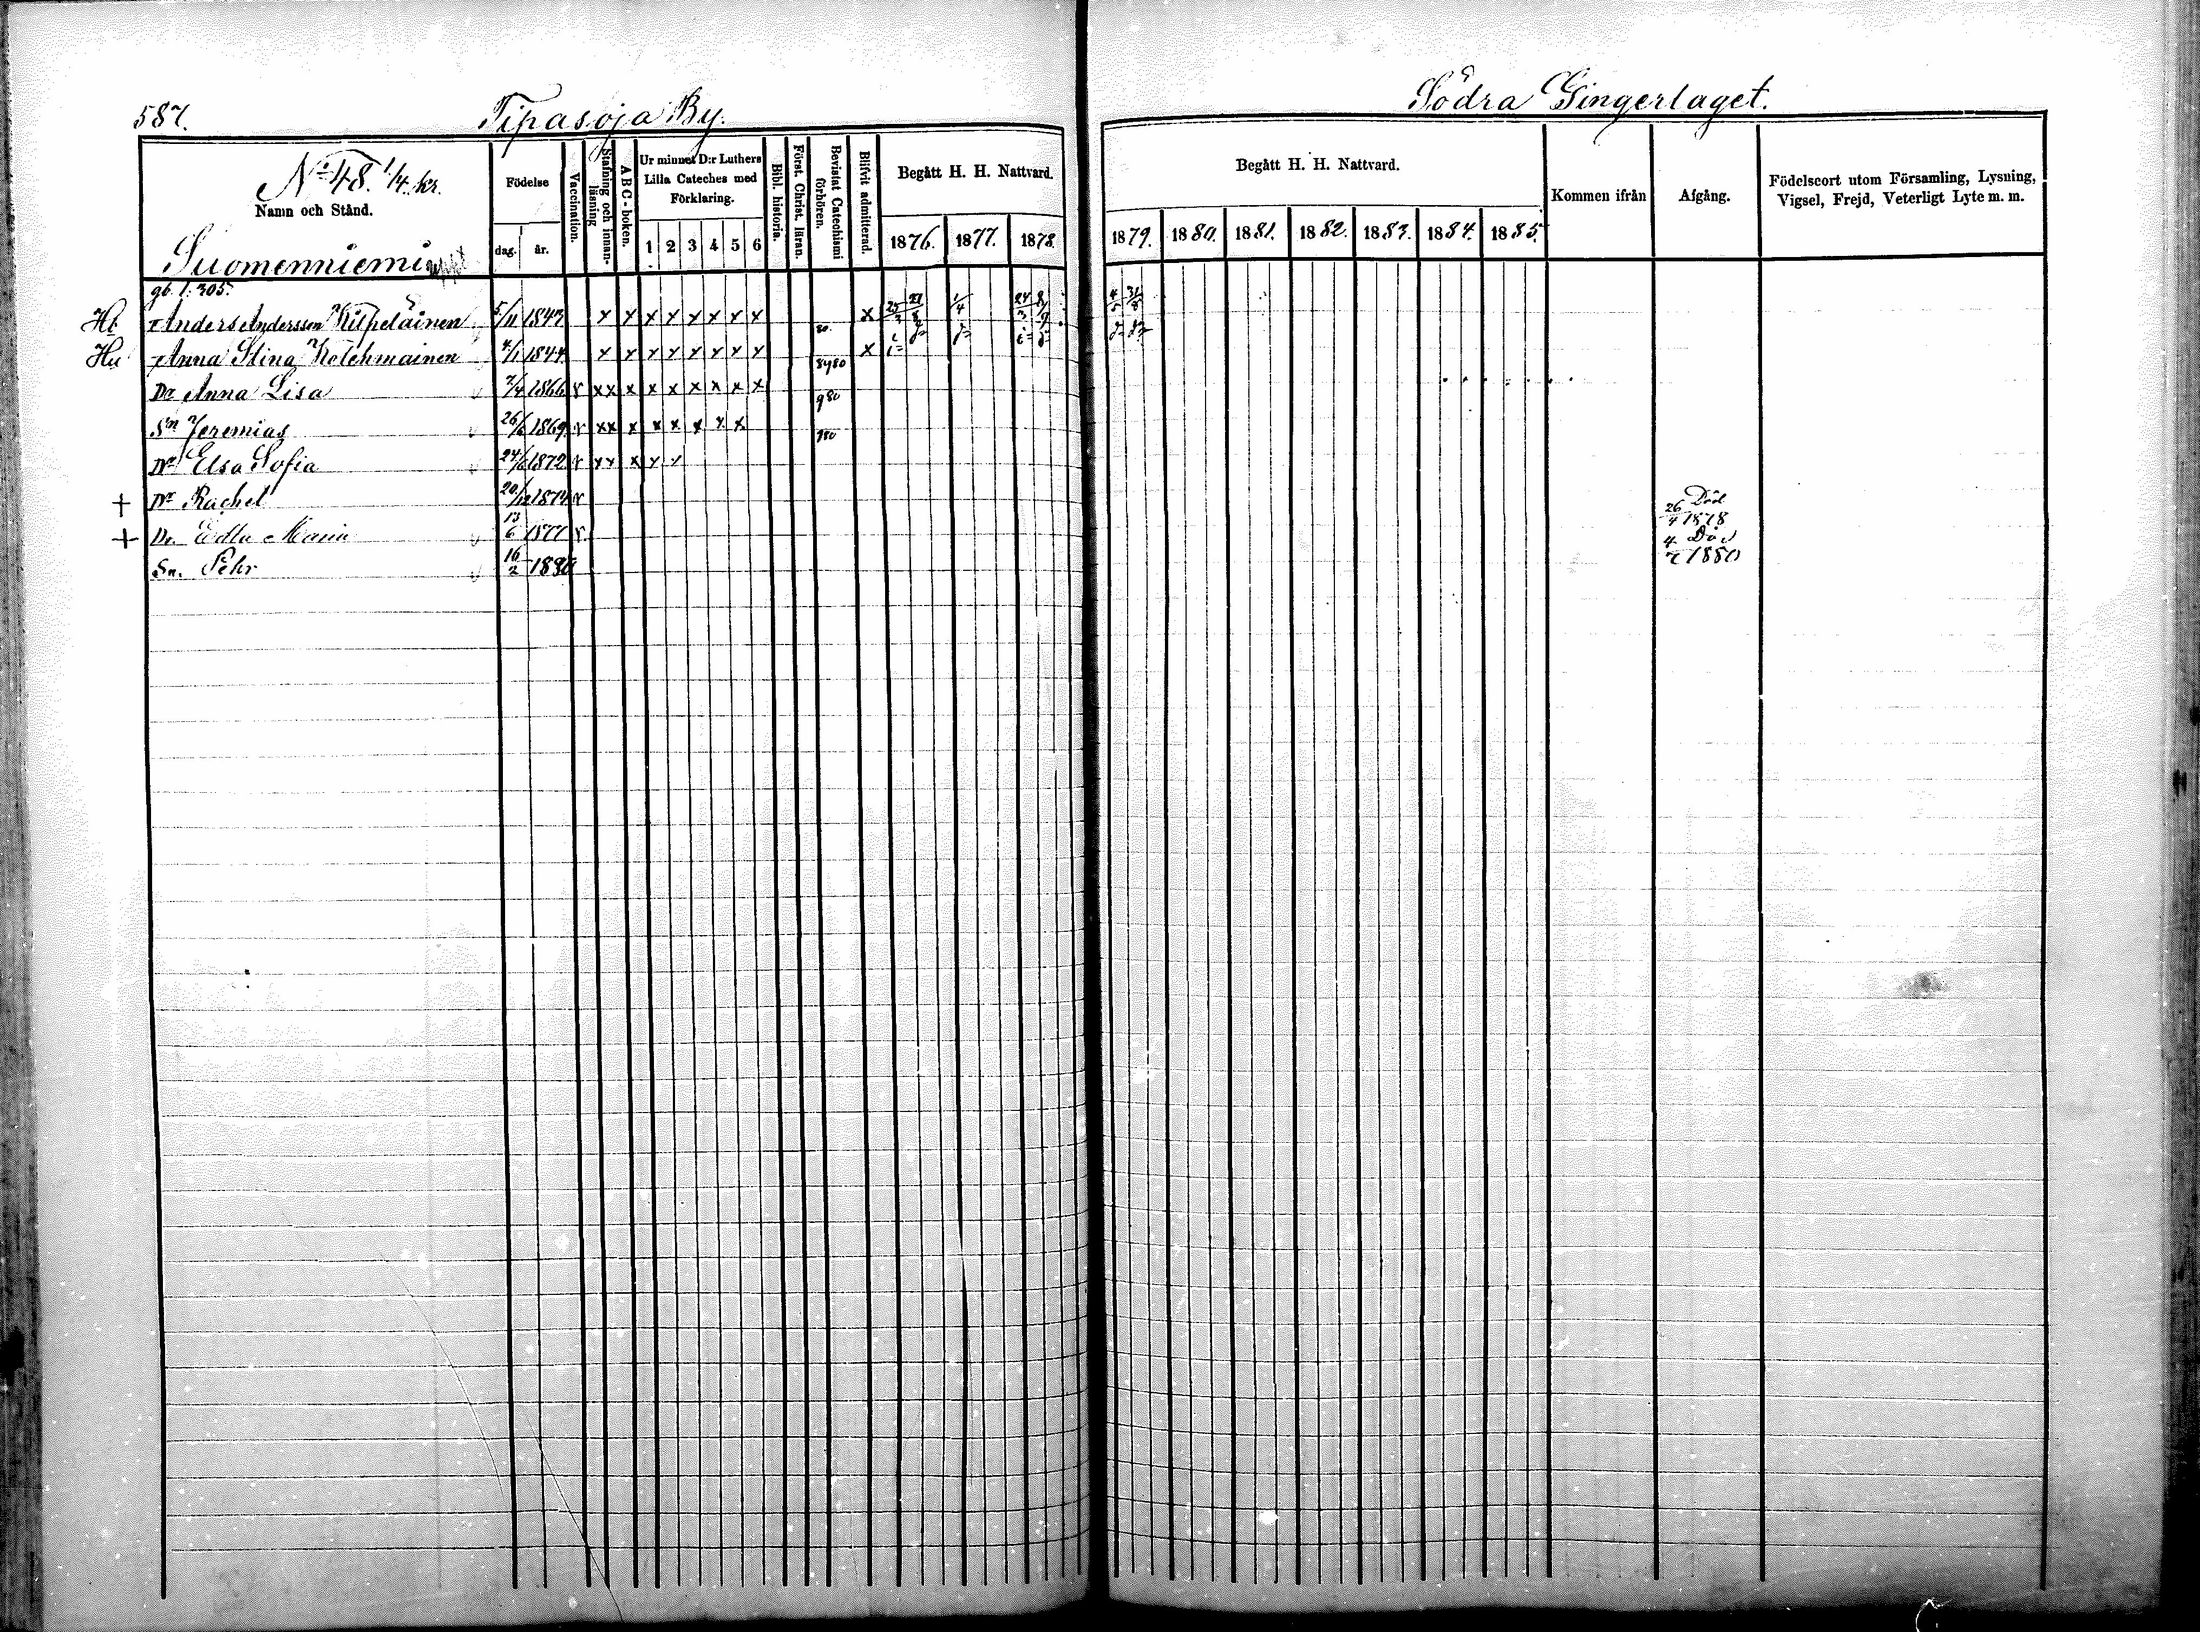 587. Tipasoja By. Södra Gingerlaget.
No 48. 1/4. kr.
Namn och Stånd.
Födelse
dag. år.
Vaccination.
Stafning och innanläsning
A B C-boken.
Ur minnet D:r Luthers Lilla Cateches med Förklaring.
1 2 3 4 5 6
Bibl. historia.
Först. Christ. läran.
Bevistat Catechismi förhören.
Blifvit admitterad.
Begått H. H. Nattvard.
1876. 1877. 1878.
Begått H. H. Nattvard.
1879. 1880. 1881. 1882. 1883. 1884. 1885.
Kommen ifrån
Afgång.
Födelseort utom Församling, Lysning, Vigsel, Frejd, Veterligt Lyte m. m.
Suomenniemi
gb. l. 305.
Anders Andersson Kilpeläinen 5/11 1843 x x x x x x x x x
Anna Stina Ketchmainen 4/1 1844 x x x x x x x x 8980 x
Dr Anna Lisa 7/4 1866 v x x x x x x x x x 980
Sn Jeremias 26/6 1869 v x x x x x x x x 980
Dr Elsa Sofia 24/6 1872 v x x x x x
+ Dr Rachel 20/12 1874 v Död 26/4 1878
+ Dr Edla Maria 13/6 1877 v Död 4/7 1880
Sn. Pehr 16/2 1880